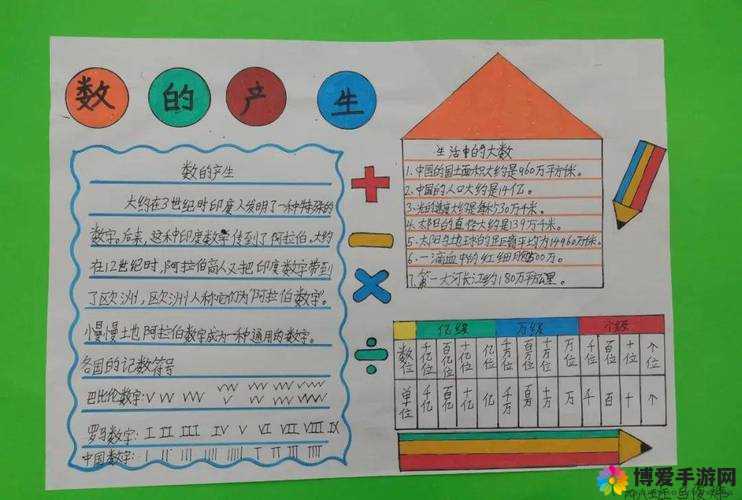 数的产生
数的产生
大约在3世纪时印度人发明了一种特殊的
数字,后来,这种印度数字传到了阿拉伯,大约
在12世纪时,阿拉伯商人又把印度数字带到
了欧洲,欧洲人称它们为"阿拉伯数字"。
慢慢土也阿拉伯数字成为一种通用的数字。
各国的记数符号
巴比伦数字:
罗马数字: I II III IV V VI VII VIII IX
中国数字:
+
−
×
÷
生活中的大数
1.中国的国土面积大约是960万平方米。
2.中国的人口大约是14亿。
4.太阳的直径大约是139万千米。
5.太阳与地球的距离平均为14960万米。
6.一滴血中的红细胞500万。
7.第一大河长江约180万平方公里。
亿级 万级 个级
数位 千亿位 百亿位 十亿位 亿位 千万位 百万位 十万位 万位 千位 百位 十位 个位
单位 千亿 百亿 十亿 亿 千万 百万 十万 万 千 百 十 个
博爱手游网